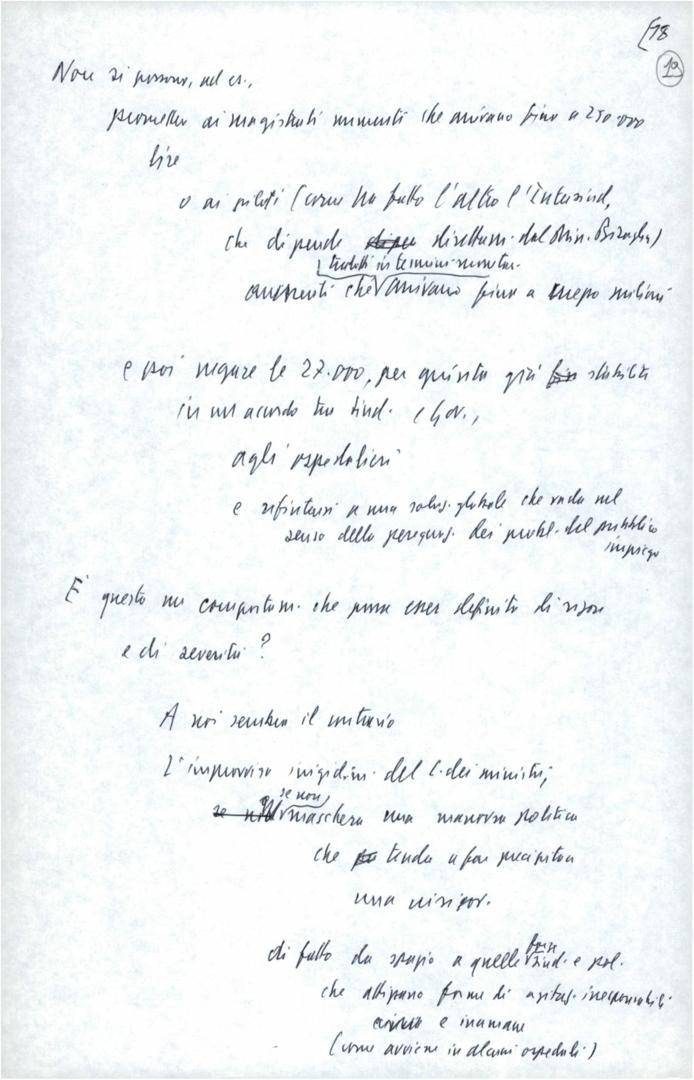 [18
19
Non si possono, ad es.,
promettere ai magistrati aumenti che arrivano fino a 250.000
lire
o ai piloti (come ha fatto l'altro l'Intersind,
che dipende direttam. dal Min. Bisaglia)
tradotti in termini monetar.
aumenti che arrivano fino a milioni
e poi negare le 27.000, per quanto già stabilite
in un accordo tra sind. e Gov.,
agli ospedalieri
e rifiutarsi a una soluz. globale che vada nel
senso della perequaz. dei probl. del pubblico
impiego
E' questo un comportam. che possa esser definito di rigore
e di severità?
A noi sembra il contrario
L'improvviso irrigidim. del C. dei ministri,
se non
maschera una manovra politica
che tenda a far precipitare
una crisi gov.
di fatto dà spazio a quelle forze sind. e pol.
che attizzano forme di agitaz. irresponsabili
e inumane
(come avviene in alcuni ospedali)